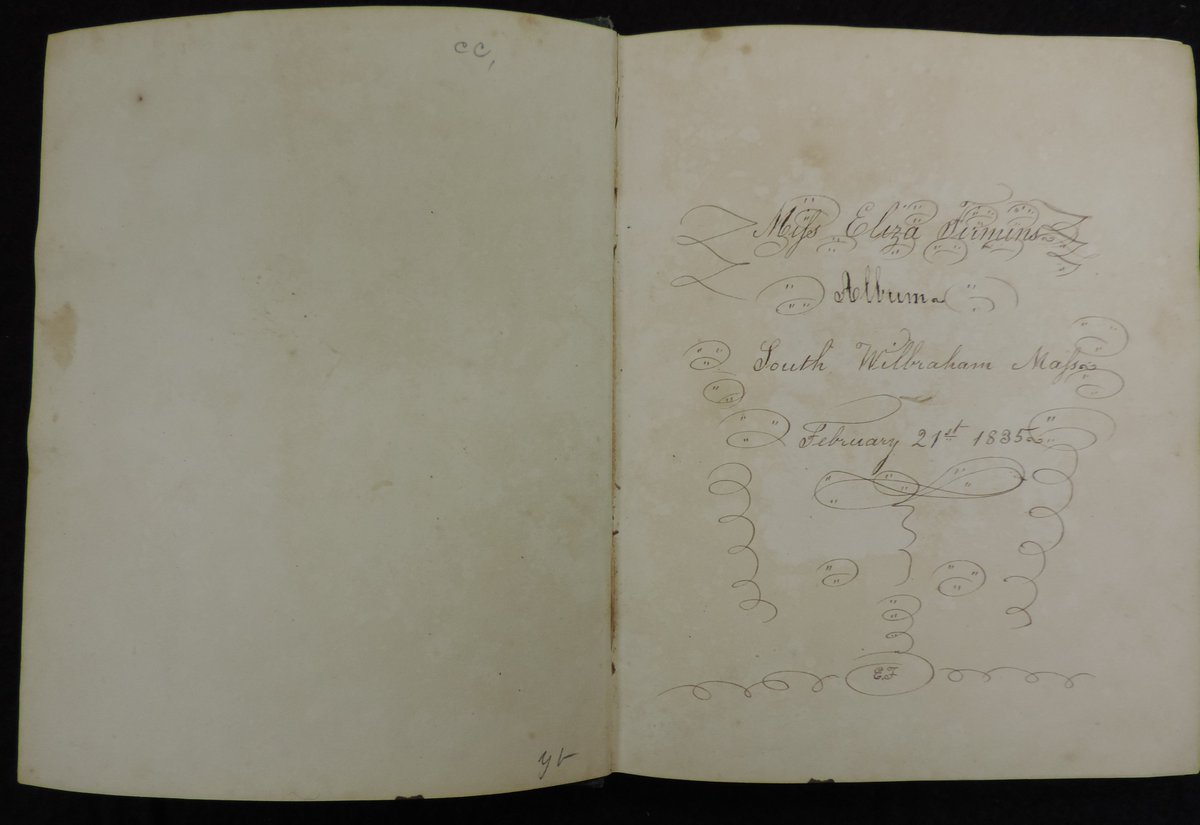 cc,
Miss Eliza Firmins
Album
South Wilbraham Mass
February 21st 1835
E.F